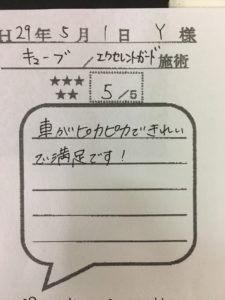 H29年5月1日 Y 様
キューブ / エクセレントガード 施術
★★★
★★
5/5
車がピカピカできれい
で満足です！